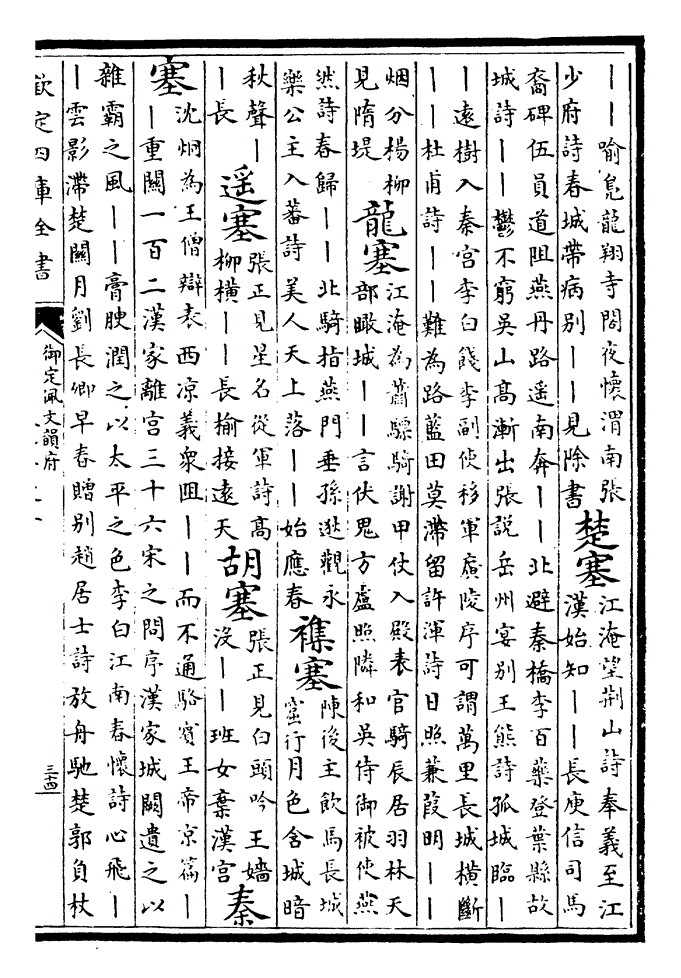 丨丨喻鳧龍翔寺閣夜懷渭南張
少府詩春城帶病別丨丨見除書
楚塞
江淹望荆山詩奉義至江
漢始知丨丨長庾信司馬
裔碑伍員道阻燕丹路遥南奔丨丨北避秦橋李百藥登葉縣故
城詩丨丨鬱不窮吳山高漸出張説岳州宴別王熊詩孤城臨丨
丨遠樹入秦宫李白餞李副使移軍廣陵序可謂萬里長城横斷
丨丨杜甫詩丨丨難為路藍田莫滯留許渾詩日照蒹葭明丨丨
烟分楊柳
見隋堤
龍塞
江淹為蕭驃騎謝甲仗入殿表官騎辰居羽林天
部瞰城丨丨言伏鬼方盧照隣和吳侍御被使燕
然詩春歸丨丨北騎指燕門垂孫逖觀永
樂公主入蕃詩 美人天上落丨丨始應春
襍塞
陳後主飲馬長城
窟行月色含城暗
秋聲丨
丨長
遥塞
張正見星名從軍詩高
柳横丨丨長榆接遠天
胡塞
張正見白頭吟王嬙
没丨丨班女棄漢宫
秦
塞
沈烱為王僧辯表西凉義衆阻丨丨而不通駱賓王帝京篇丨
丨重關一百二漢家離宫三十六宋之問序漢家城闕遺之以
雜霸之風丨丨膏腴潤之以太平之色李白江南春懷詩心飛丨
丨雲影滯楚關月劉長卿早春贈別趙居士詩放舟馳楚郭負杖
欽定四庫全書
御定佩文韻府
三十四